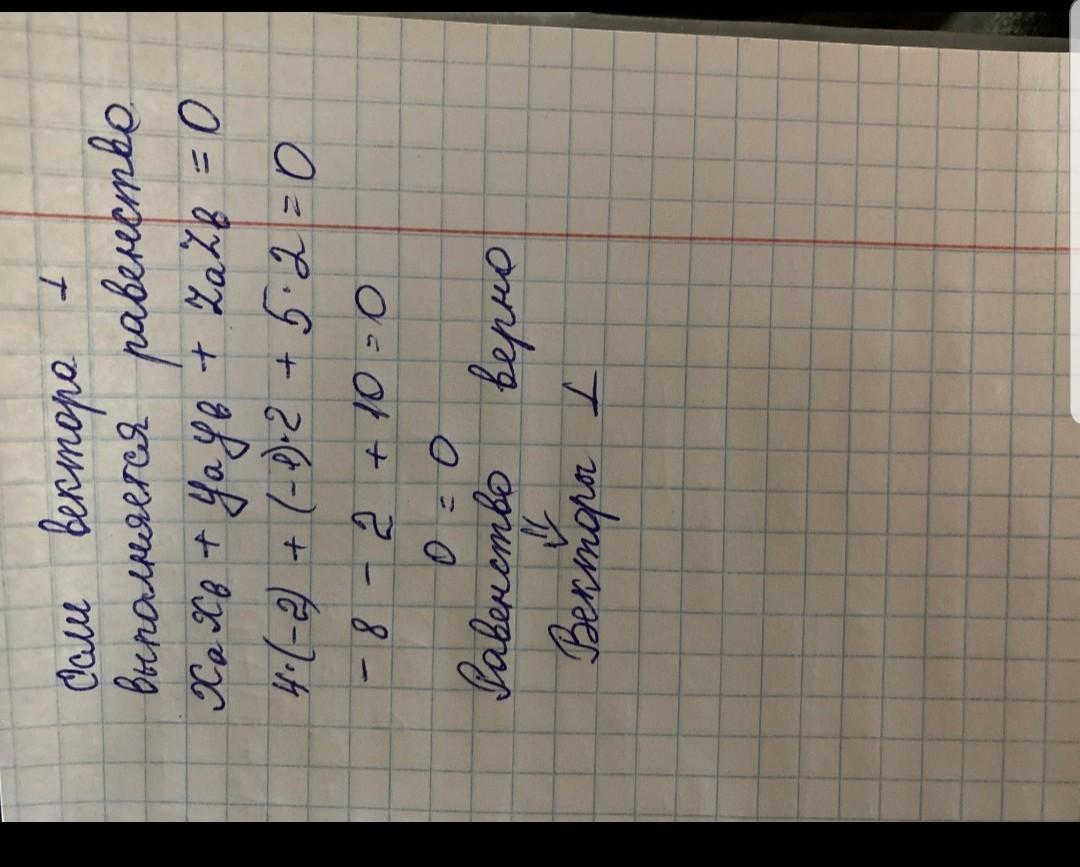 Если вектора ⊥
выполняется равенство
XaXв + YaYв + ZaZв = 0
4·(-2) + (-1)·2 + 5·2 = 0
- 8 - 2 + 10 = 0
0 = 0
Равенство верно
⇓
Векторы ⊥